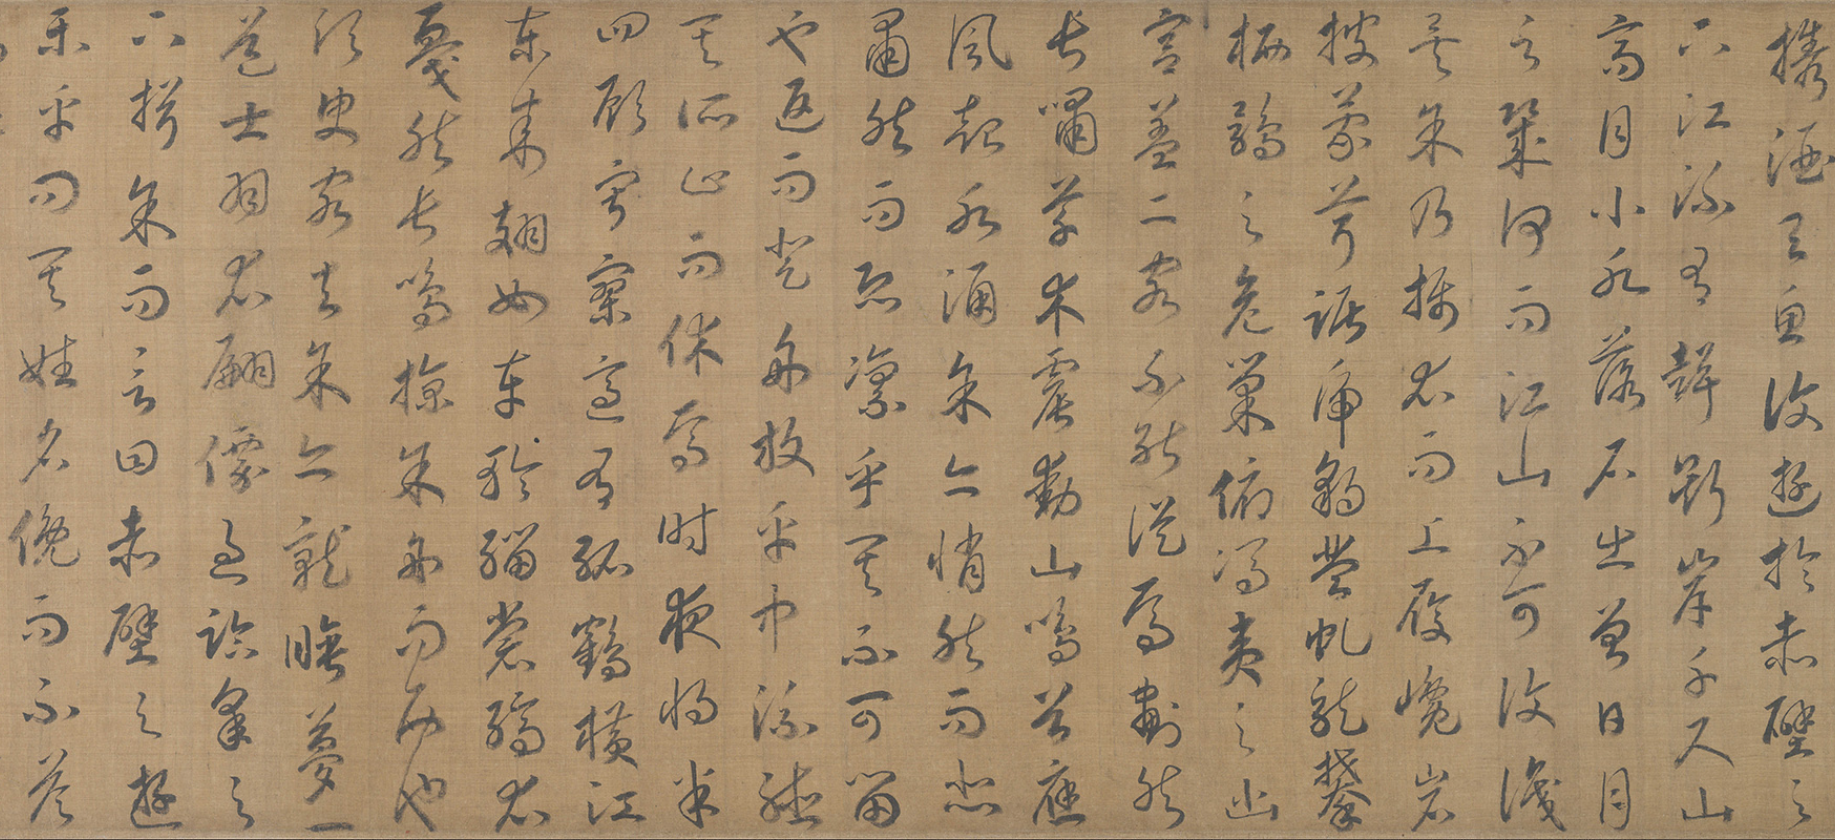 攜酒與魚復遊於赤壁之
下江流有聲斷岸千尺山
高月小水落石出曾日月
之幾何而江山不可復識
矣余乃攝衣而上履巉岩
披蒙茸踞虎豹登虬龍攀
栖鶻之危巢俯馮夷之幽
宮蓋二客不能從焉劃然
長嘯草木震動山鳴谷應
風起水涌余亦悄然而悲
肅然而恐凜乎其不可留
也返而登舟放乎中流聽
其所止而休焉時夜將半
四顧寂寥適有孤鶴橫江
東來翅如車輪緇裳縞衣
戛然長鳴掠余舟而西也
須臾客去余亦就睡夢一
道士羽衣翩僊過臨皋之
下揖余而言曰赤壁之遊
樂乎問其姓名俛而不答